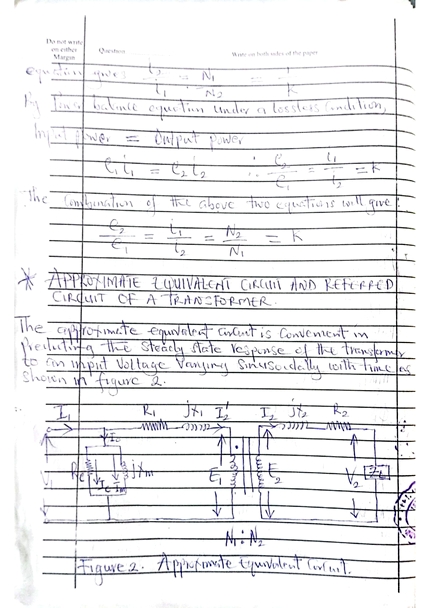 Do not write
on either
Margin
Question
Write on both sides of the paper
equation gives i₂/i₁ = N₁/N₂ = 1/k
By Power balance equation under a lossless condition,
Input power = Output power
e₁i₁ = e₂i₂ ∴ e₂/e₁ = i₁/i₂ = k
The combination of the above two equations will give:
e₂/e₁ = i₁/i₂ = N₂/N₁ = k
* APPROXIMATE EQUIVALENT CIRCUIT AND REFERRED
CIRCUIT OF A TRANSFORMER.
The approximate equivalent circuit is convenient in
predicting the steady state response of the transformer
to an input voltage varying sinusoidally with time as
shown in figure 2.
I₁ R₁ jx₁ I₂' I₂ jx₂ R₂
Rc Ic Im jxm E₁ E₂ V₂
N₁ : N₂
Figure 2. Approximate Equivalent Circuit.